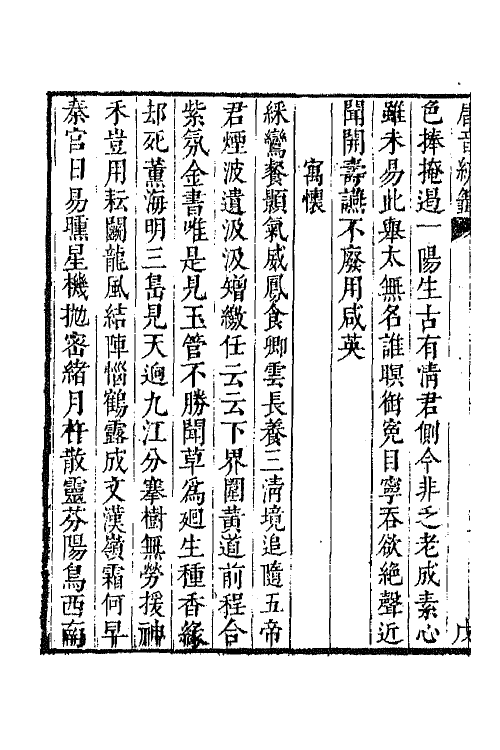 色捧掩過一陽生古有情君側今非乏老成素心
雖未易此舉太無名誰瞑銜寃目寧吞欲絶聲近
聞開壽讌不廢用咸英
寓懷
綵鸞餐顥氣威鳳食卿雲長養三清境追隨五帝
君煙波遺汲汲矰繳任云云下界圍黄道前程合
紫氛金書唯是見玉管不勝聞草爲廻生種香緣
却死薰海明三島見天逈九江分搴樹無勞援神
禾豈用耘鬬龍風結陣惱鶴露成文漢嶺霜何早
秦宫日易曛星機抛密緒月杵散靈芬陽鳥西南